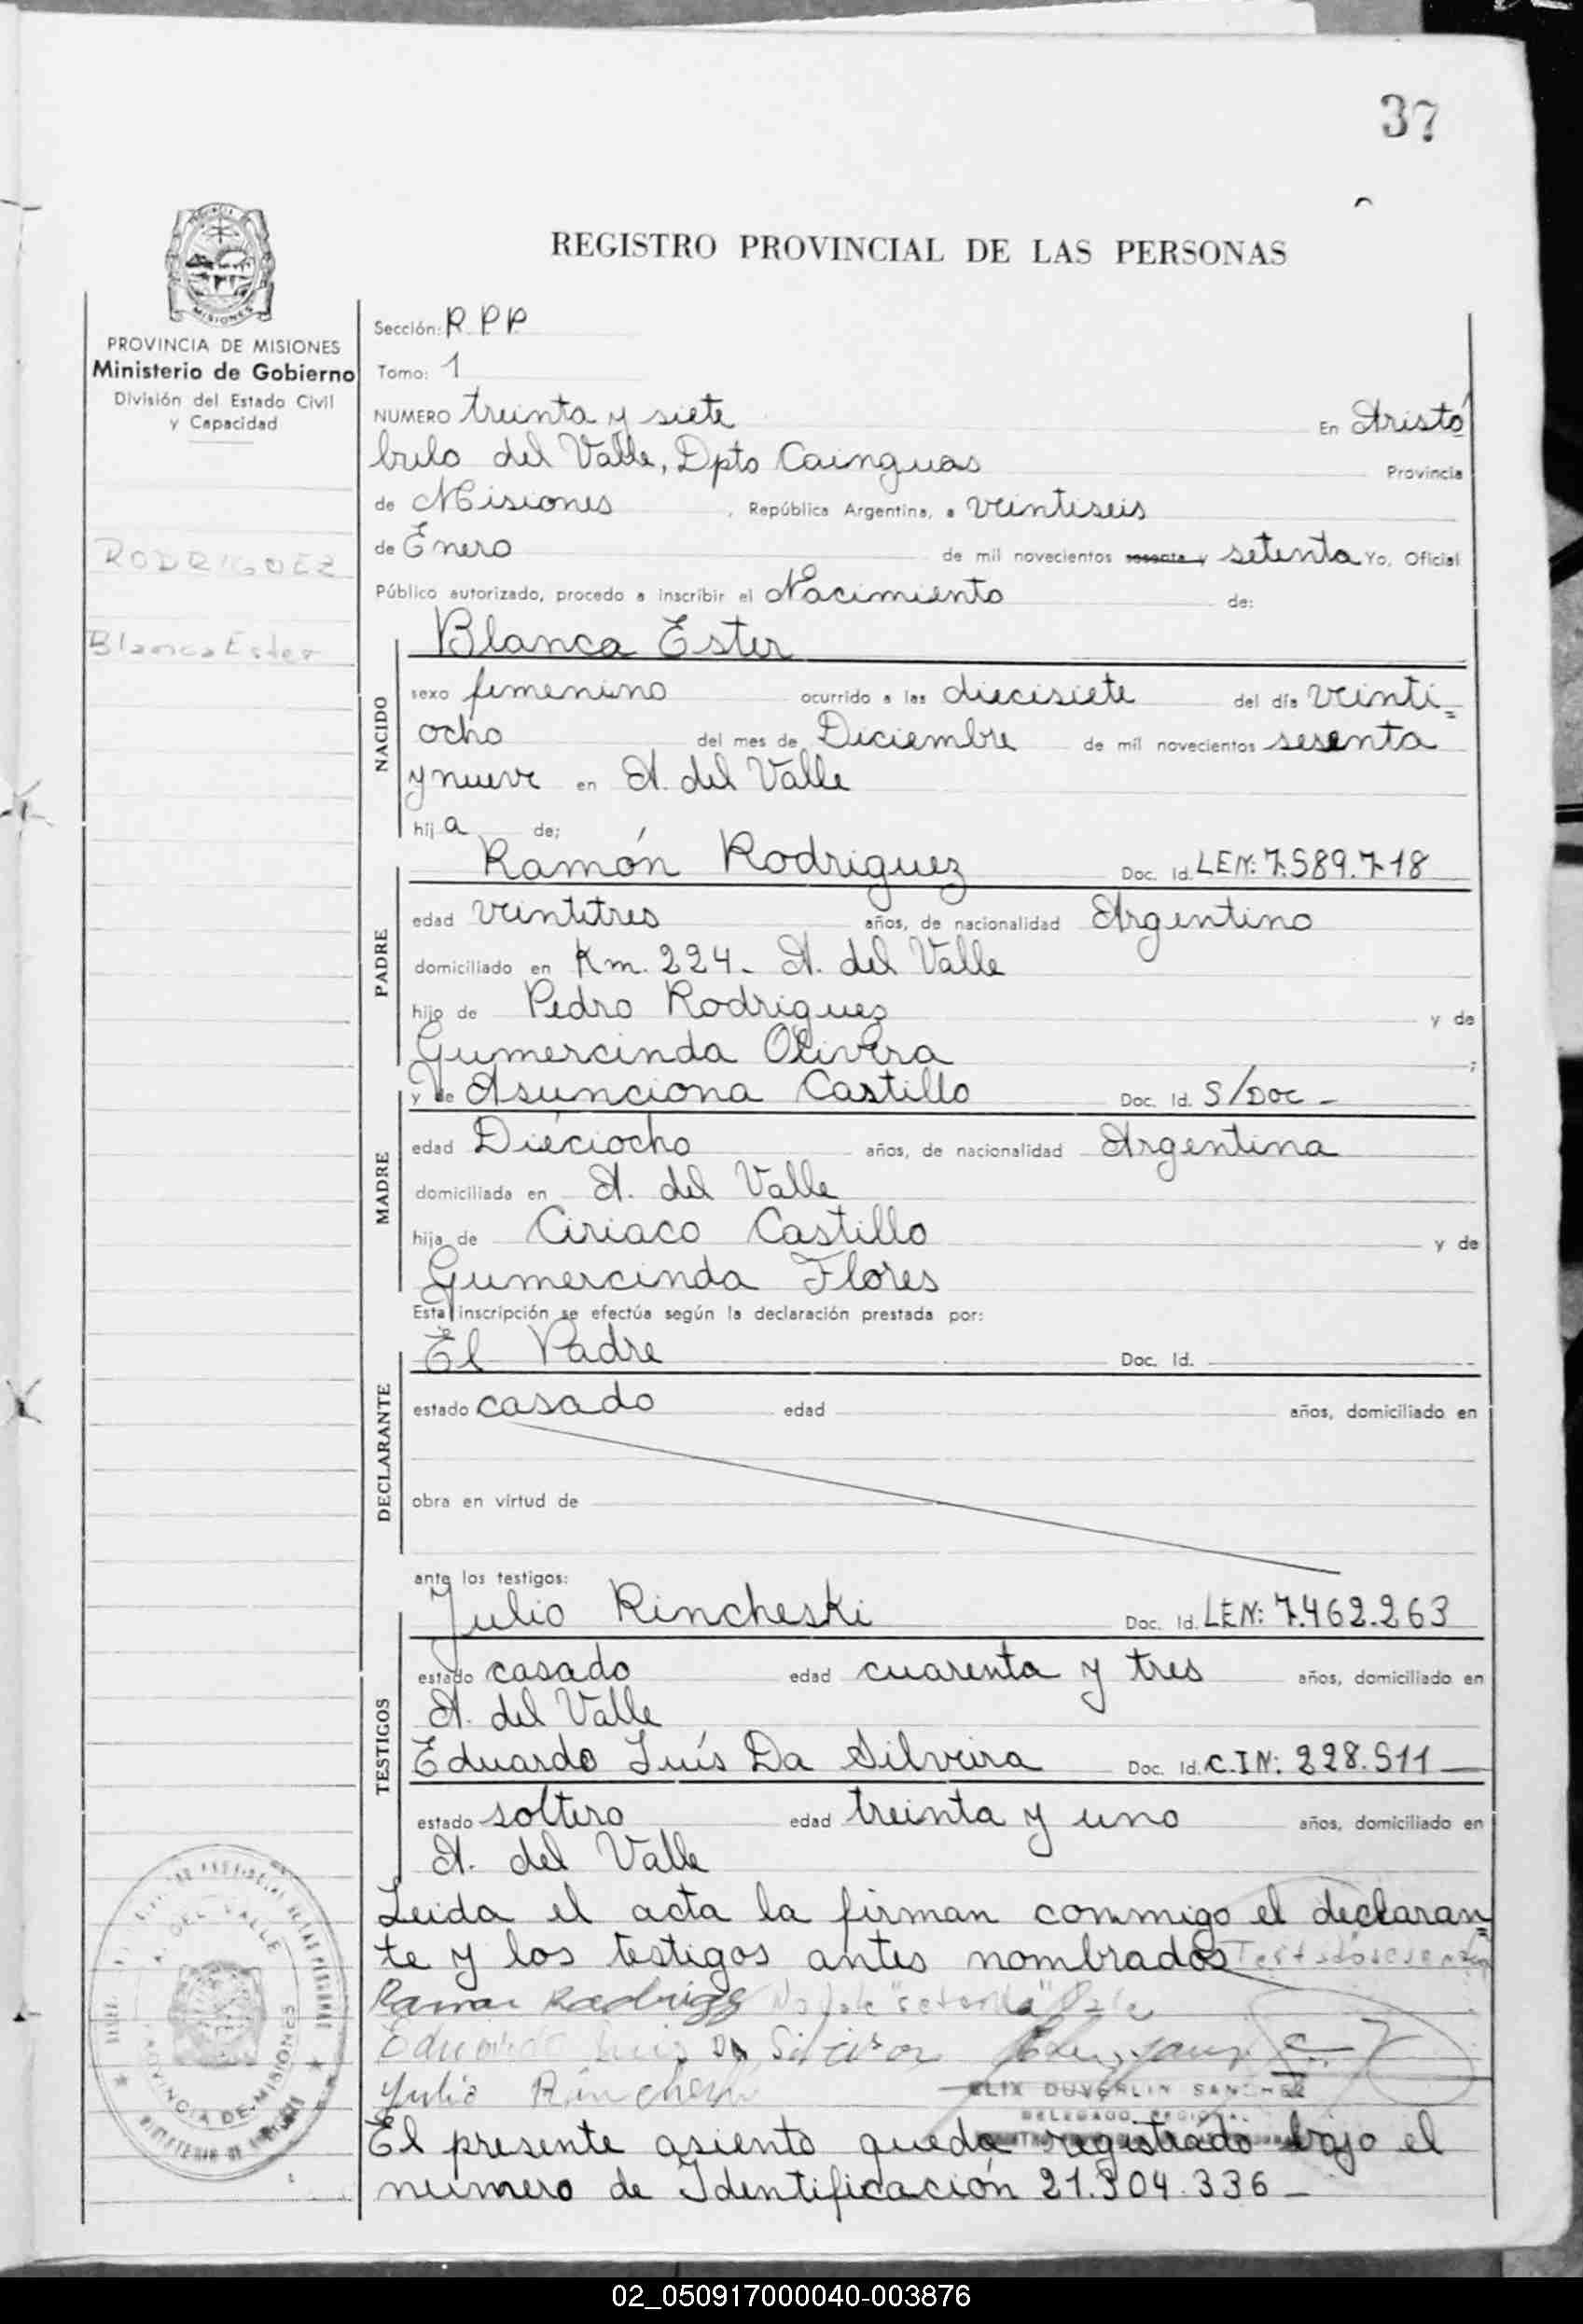 37
REGISTRO PROVINCIAL DE LAS PERSONAS
MISIONES
PROVINCIA DE MISIONES
Ministerio de Gobierno
División del Estado Civil
y Capacidad
RODRIGUEZ
Blanca Ester
Sección: R P P
Tomo: 1
NUMERO treinta y siete En Aristó
bulo del Valle, Dpto Cainguas Provincia
de Misiones, República Argentina, a veintiseis
de Enero de mil novecientos sesenta y setenta Yo, Oficial
Público autorizado, procedo a inscribir el Nacimiento de:
Blanca Ester
NACIDO
sexo femenino ocurrido a las diecisiete del día veinti=
ocho del mes de Diciembre de mil novecientos sesenta
y nueve en A. del Valle
hij a de;
Ramón Rodriguez Doc. Id. LEN: 7.589.718
PADRE
edad veintitres años, de nacionalidad Argentino
domiciliado en Km. 224- A. del Valle
hijo de Pedro Rodriguez y de
Gumercinda Olivera ;
y de Asunciona Castillo Doc. Id. S/DOC -
MADRE
edad Dieciocho años, de nacionalidad Argentina
domiciliada en A. del Valle
hija de Ciriaco Castillo y de
Gumercinda Flores
Esta inscripción se efectúa según la declaración prestada por:
El Padre Doc. Id.
DECLARANTE
estado casado edad años, domiciliado en
obra en virtud de
ante los testigos:
Julio Rincheski Doc. Id. LEN: 7.462.263
TESTIGOS
estado casado edad cuarenta y tres años, domiciliado en
A. del Valle
Eduardo Luís Da Silveira Doc. Id. C.IN: 228.511
estado soltero edad treinta y uno años, domiciliado en
A. del Valle
Leida el acta la firman conmigo el declaran=
te y los testigos antes nombrados
Ramon Rodriguez No vale "setenta" Vale
Eduardo Luis Da Silveira
Julio Rincheski
FELIX DUVERLIN SANCHEZ
DELEGADO REGIONAL
A. DEL VALLE
PROVINCIA DE MISIONES
El presente asiento queda registrado bajo el
número de Identificación 21.304.336 -
02_050917000040-003876